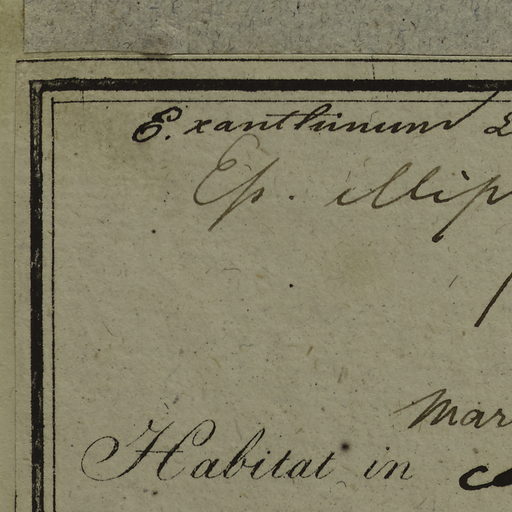 E. xanthinum
Ep. ellip
Mar
Habitat in